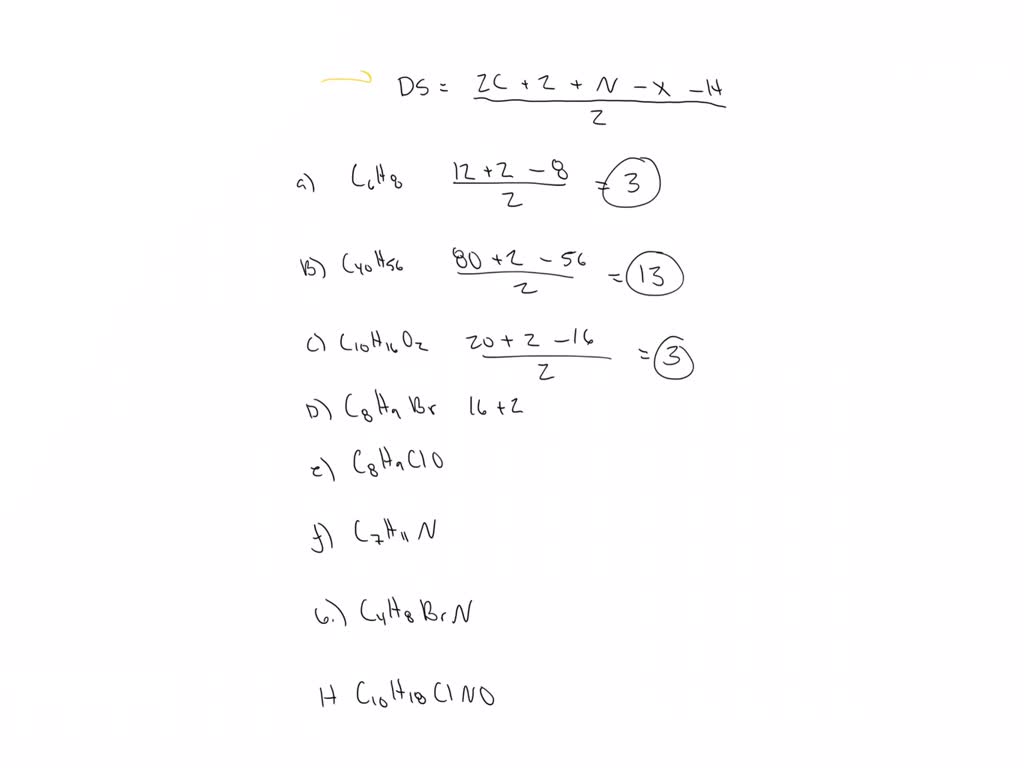 DS = 2C + 2 + N - X - H / 2
a) C6H8 12 + 2 - 8 / 2 = 3
B) C40H56 80 + 2 - 56 / 2 = 13
c) C10H16O2 20 + 2 - 16 / 2 = 3
D) C8H9Br 16 + 2
e) C8H9ClO
f) C7H11N
6.) C4H8BrN
H C10H18ClNO